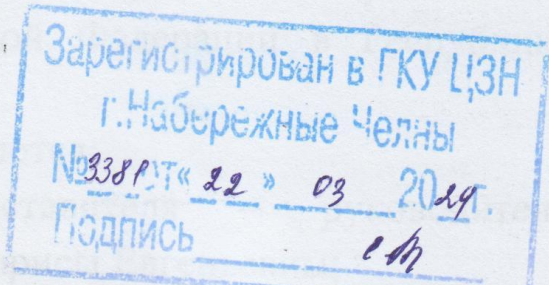 Зарегистрирован в ГКУ ЦЗН
г.Набережные Челны
№ 3381 от « 22 » 03 2024г.
Подпись